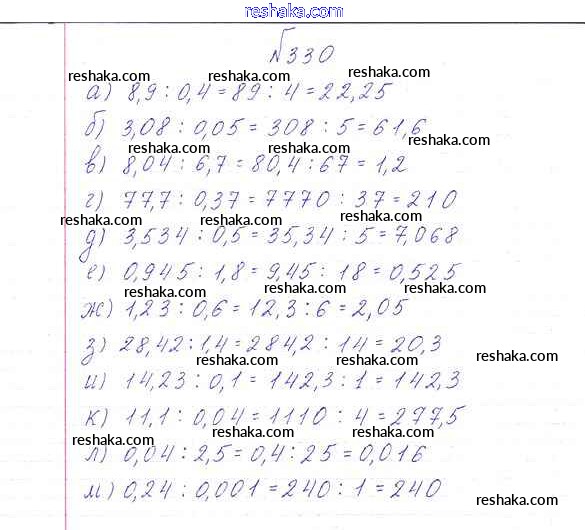 reshaka.com
№330
reshaka.com reshaka.com reshaka.com
а) 8,9 : 0,4 = 89 : 4 = 22,25
б) 3,08 : 0,05 = 308 : 5 = 61,6
reshaka.com reshaka.com
в) 8,04 : 6,7 = 80,4 : 67 = 1,2
г) 77,7 : 0,37 = 7770 : 37 = 210
reshaka.com reshaka.com reshaka.com
д) 3,534 : 0,5 = 35,34 : 5 = 7,068
е) 0,945 : 1,8 = 9,45 : 18 = 0,525
reshaka.com reshaka.com reshaka.com
ж) 1,23 : 0,6 = 12,3 : 6 = 2,05
з) 28,42 : 1,4 = 284,2 : 14 = 20,3
reshaka.com reshaka.com reshaka.com
и) 14,23 : 0,1 = 142,3 : 1 = 142,3
к) 11,1 : 0,04 = 1110 : 4 = 277,5
reshaka.com reshaka.com reshaka.com
л) 0,04 : 2,5 = 0,4 : 25 = 0,016
м) 0,24 : 0,001 = 240 : 1 = 240
reshaka.com
reshaka.com